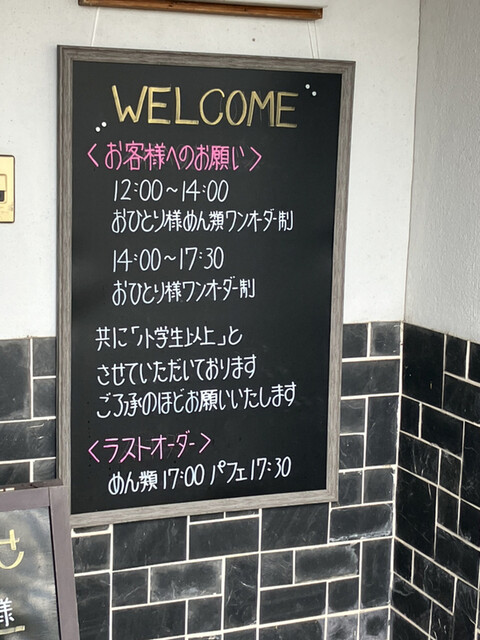 WELCOME
<お客様へのお願い>
12:00～14:00
おひとり様めん類ワンオーダー制
14:00～17:30
おひとり様ワンオーダー制
共に「小学生以上」と
させていただいております
ご了承のほどお願いいたします
<ラストオーダー>
めん類17:00 パフェ17:30
せ
様